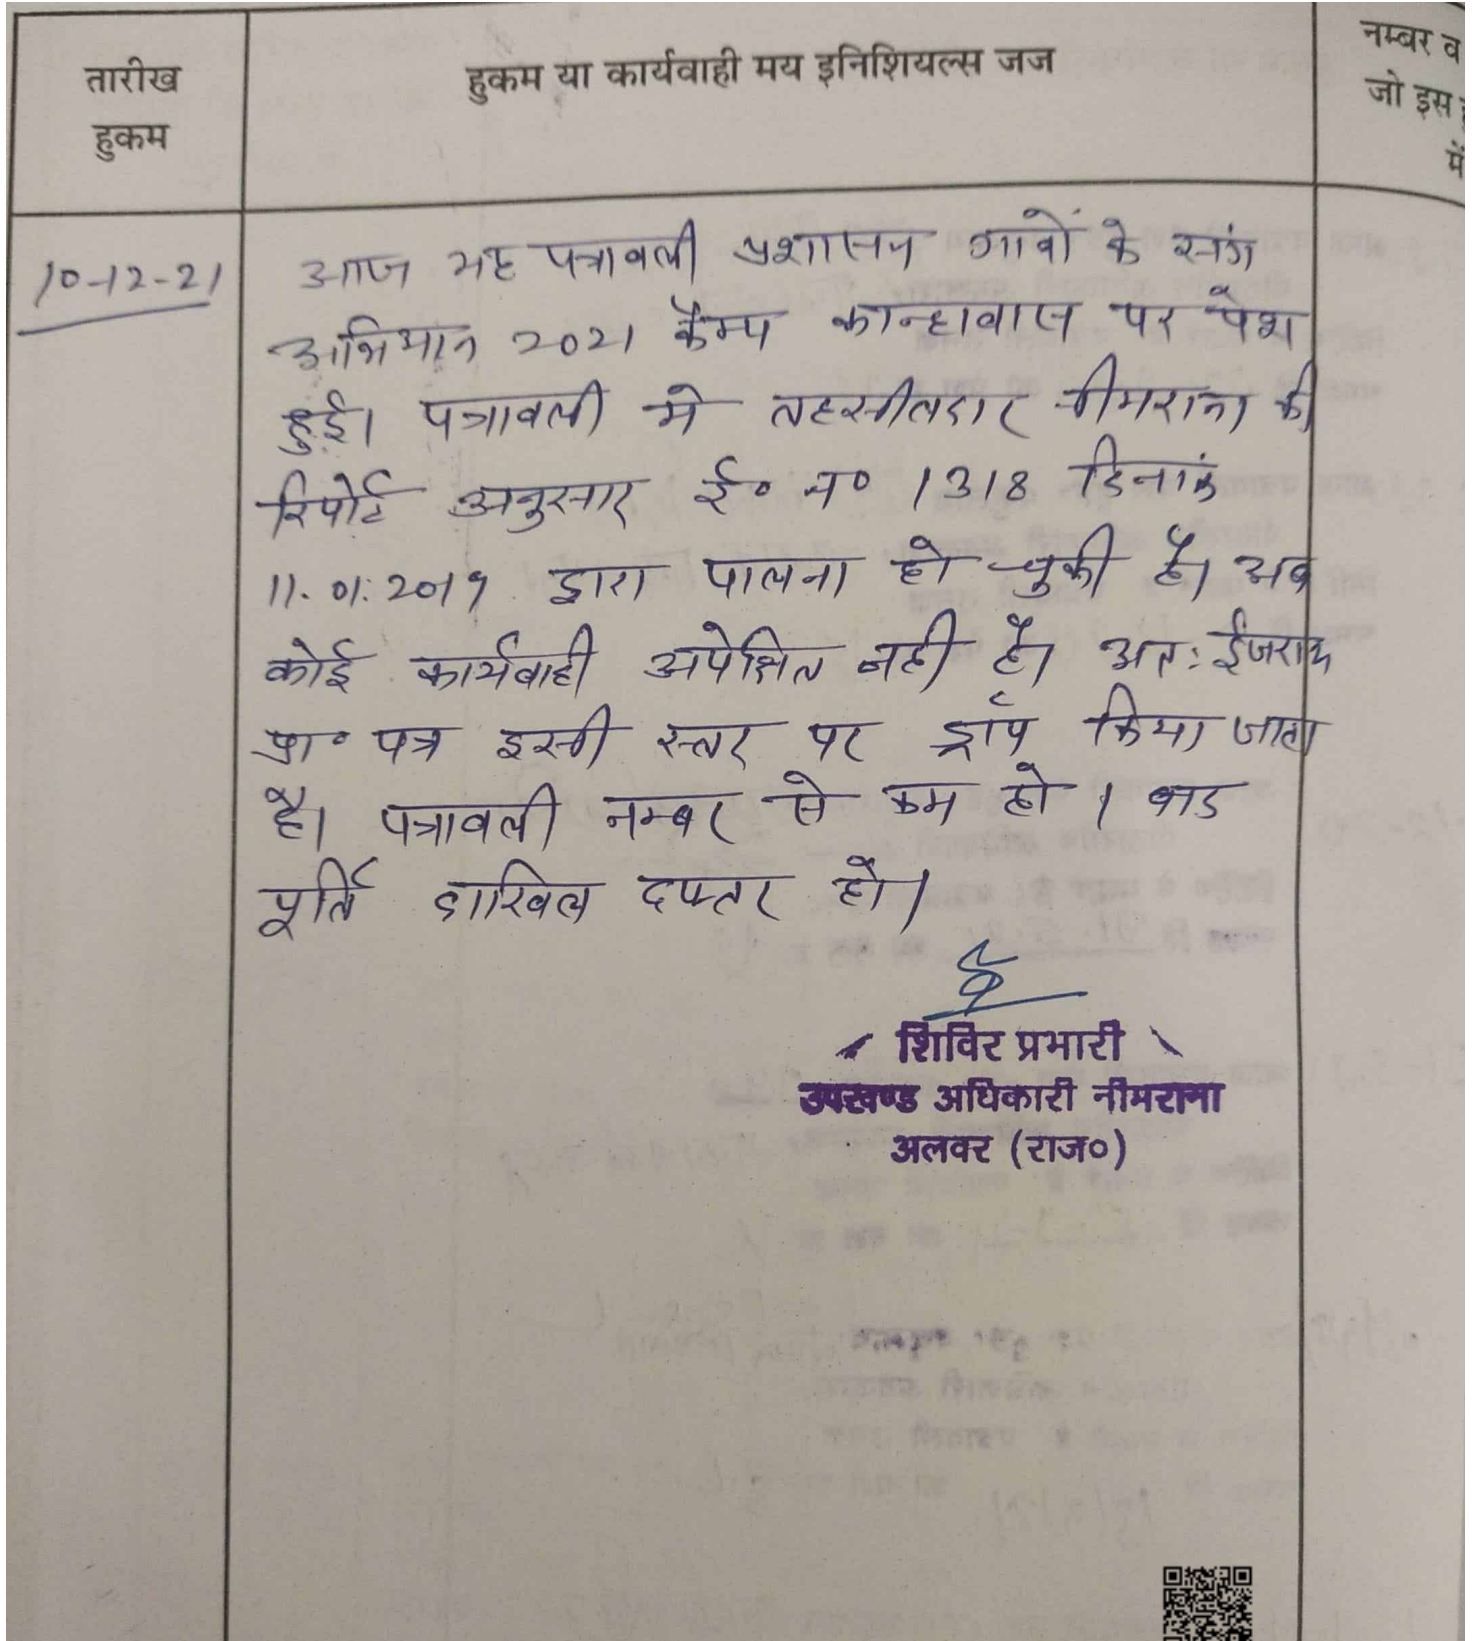 तारीख
हुकम
हुकम या कार्यवाही मय इनिशियल्स जज
नम्बर व
जो इस
में
10-12-21
आज यह पत्रावली प्रशासन गावों के संग
अभियान 2021 कैम्प कान्हावास पर पेश
हुई। पत्रावली मे तहसीलदार नीमराना की
रिपोर्ट अनुसार ई० न० 1318 दिनांक
11.01.2019 द्वारा पालना हो चुकी है। अब
कोई कार्यवाही अपेक्षित नही है। अतः ईजराय
प्रा० पत्र इसी स्तर पर ड्रॉप किया जाता
है। पत्रावली नम्बर से कम हो। वाद
पूर्ति दाखिल दफ्तर हो।
शिविर प्रभारी
उपखण्ड अधिकारी नीमराना
अलवर (राज०)